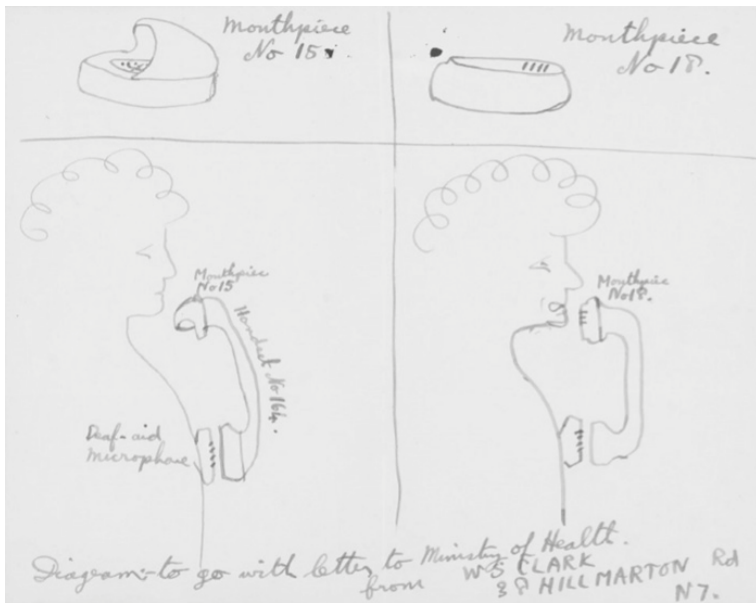 Mouthpiece
No 15.
Mouthpiece
No 18.
Mouthpiece
No 15
Handset No 164.
Deaf-aid
Microphone
Mouthpiece
No 18.
Diagram to go with letter to Ministry of Health.
from W S CLARK
38 HILLMARTON Rd
N7.